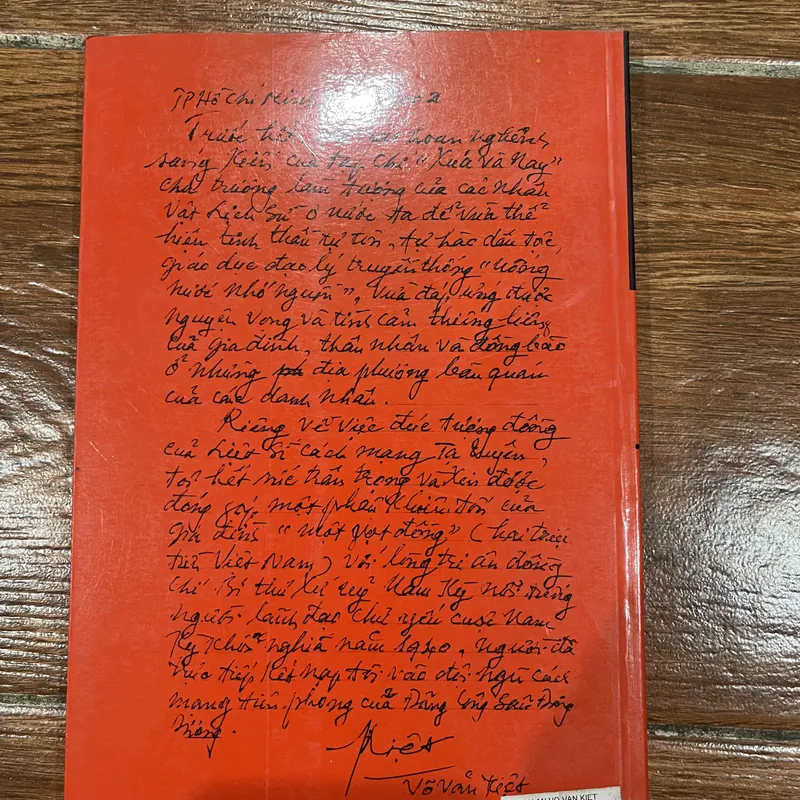 TP Hồ Chí Minh
Trước hết hoan nghênh
sáng kiến của tạp chí "Xưa và Nay"
chủ trương làm tượng của các nhân
vật lịch sử ở nước ta để vừa thể
hiện tinh thần tự tôn, tự hào dân tộc,
giáo dục đạo lý truyền thống "uống
nước nhớ nguồn", vừa đáp ứng được
nguyện vọng và tình cảm thiêng liêng
của gia đình, thân nhân và đồng bào
ở những địa phương bản quán
của các danh nhân.
Riêng về việc đúc tượng đồng
của liệt sĩ cách mạng Tạ Uyên,
tôi hết sức trân trọng và xin được
đóng góp một phần khiêm tốn của
gia đình "một giọt đồng" (hai triệu
tiền Việt Nam) với lòng tri ân đồng
chí Bí thư xứ uỷ Nam Kỳ nổi tiếng
người lãnh đạo chủ yếu cuộc Nam
Kỳ Khởi nghĩa năm 1940, người đã
trực tiếp kết nạp tôi vào đội ngũ cách
mạng tiên phong của Đảng Cộng Sản Đông
Dương.
Kiệt
Võ Văn Kiệt
AN VO VAN KIET